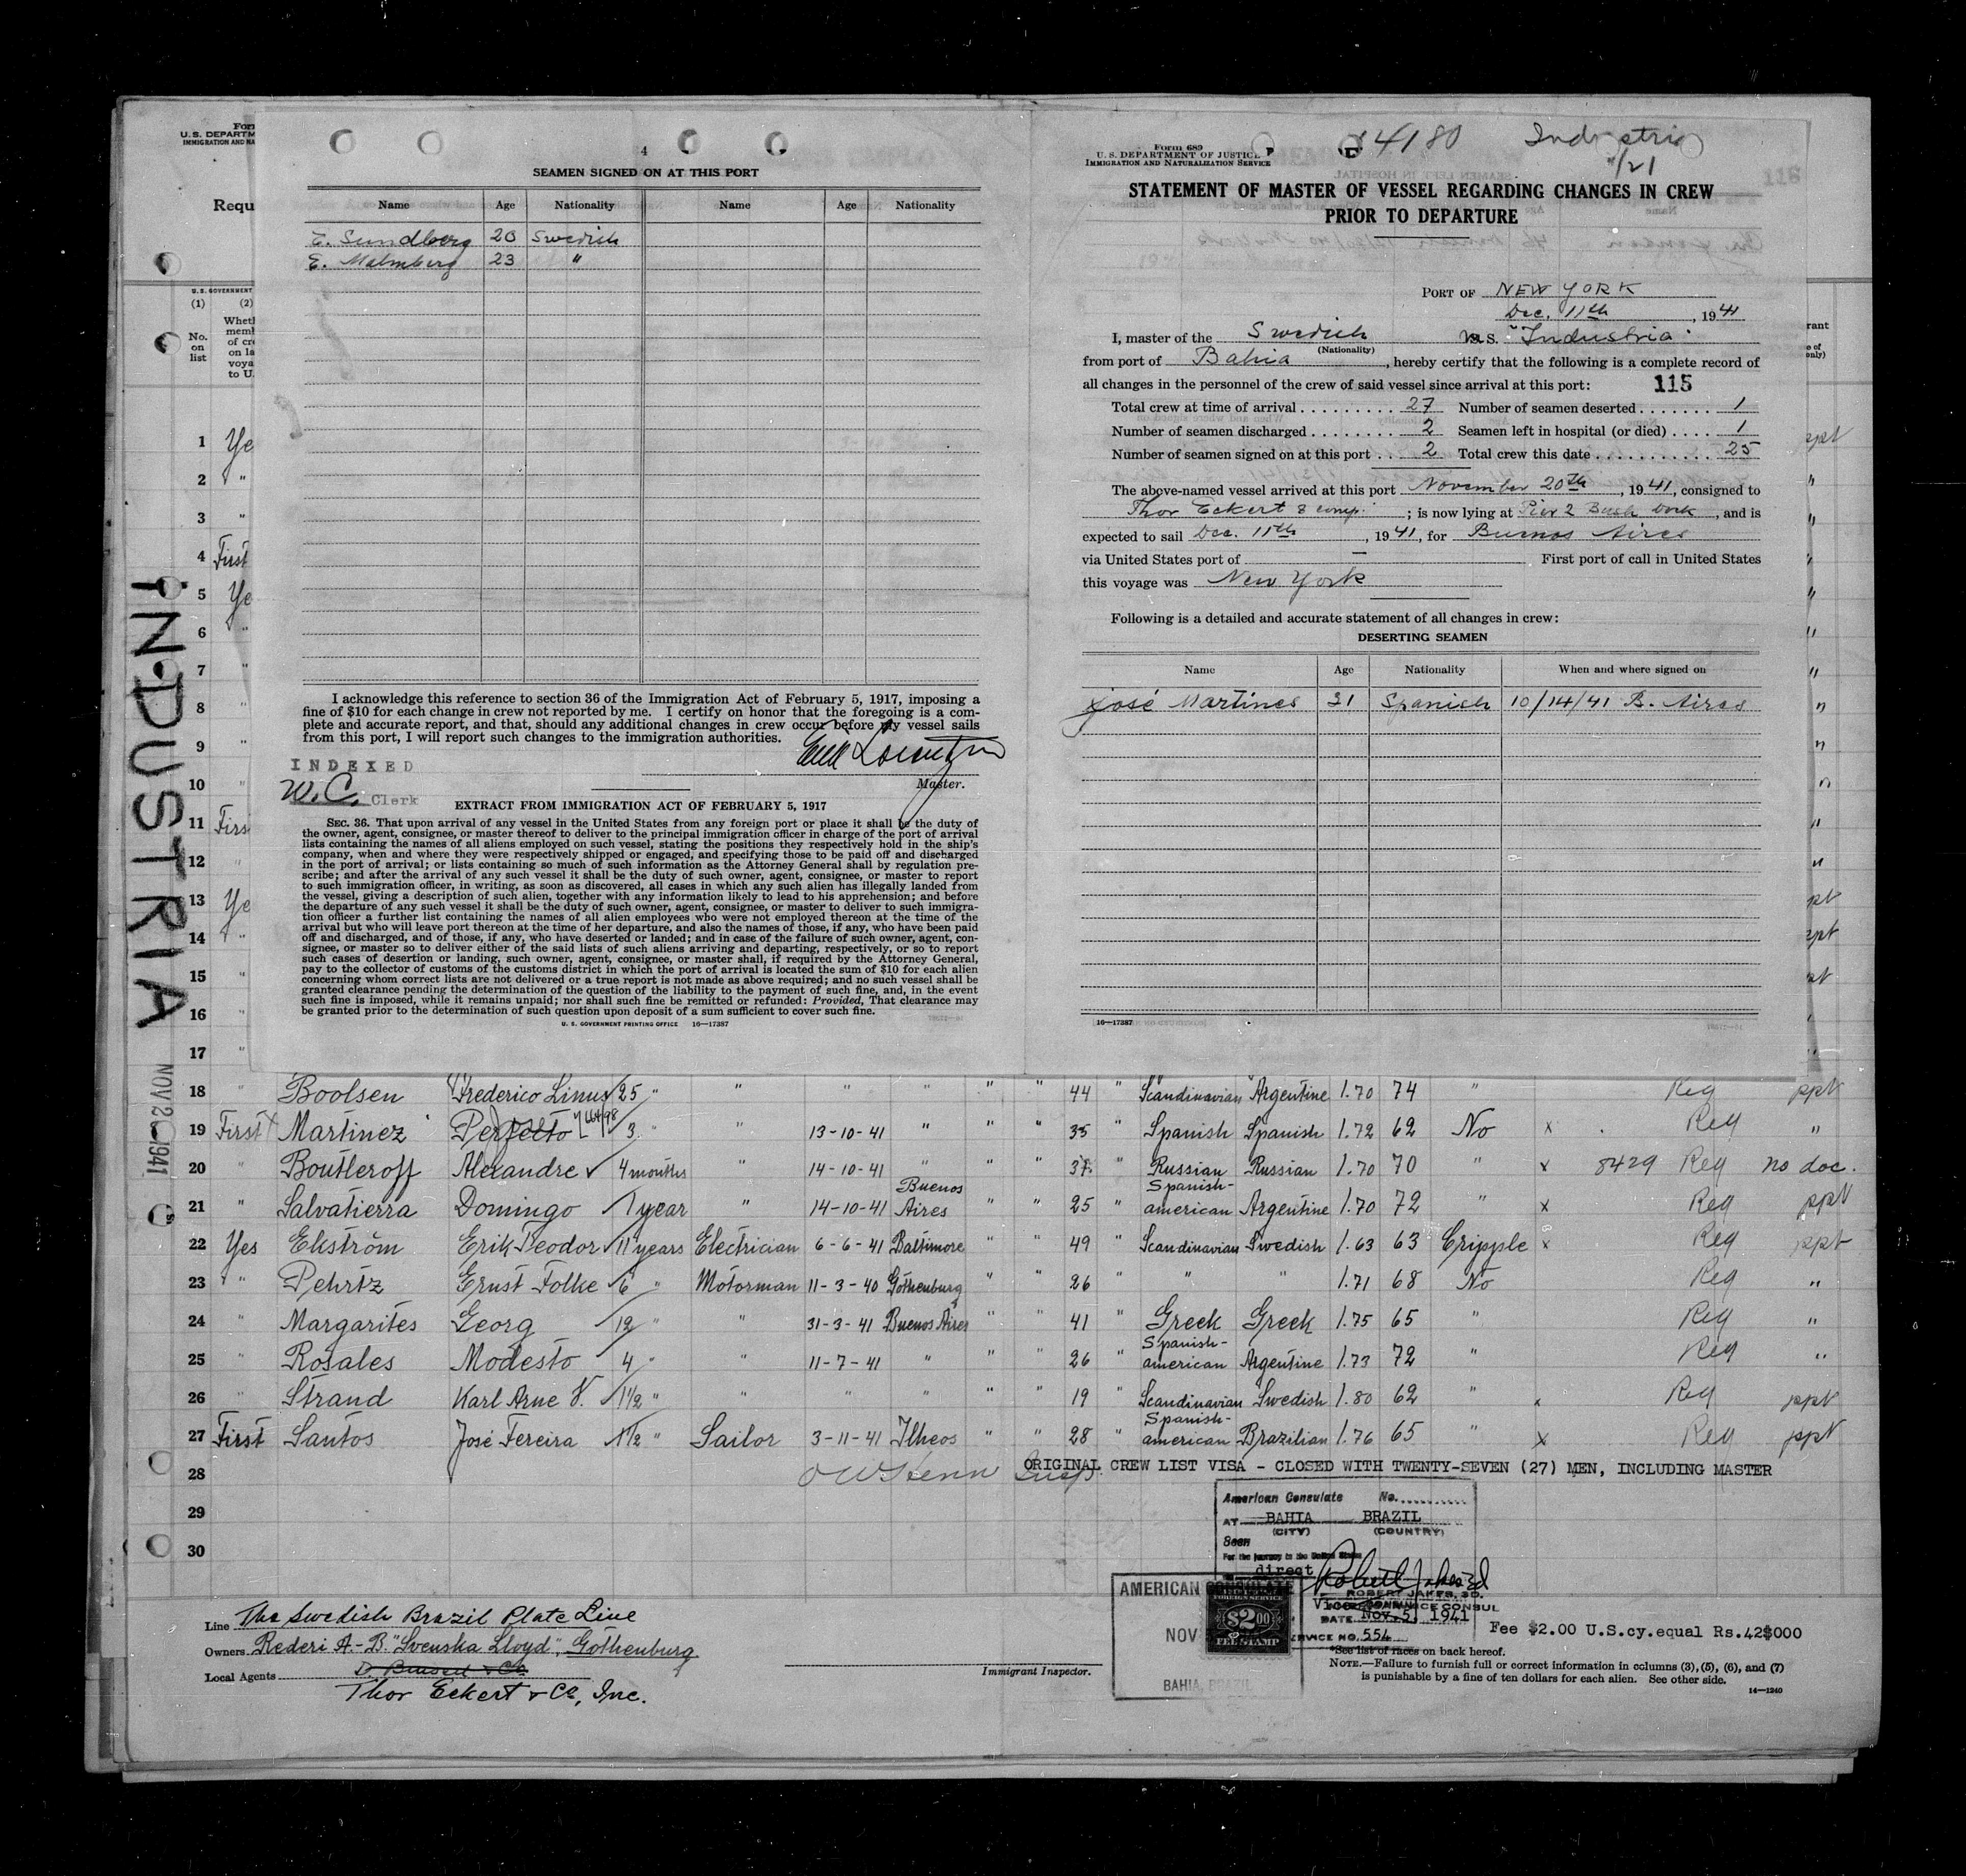 4
SEAMEN SIGNED ON AT THIS PORT
Name Age Nationality Name Age Nationality
E. Sundberg 20 Swedish
E. Malmberg 23 "
I acknowledge this reference to section 36 of the Immigration Act of February 5, 1917, imposing a
fine of $10 for each change in crew not reported by me. I certify on honor that the foregoing is a com-
plete and accurate report, and that, should any additional changes in crew occur before my vessel sails
from this port, I will report such changes to the immigration authorities.
INDEXED
W.C. Clerk
Master.
EXTRACT FROM IMMIGRATION ACT OF FEBRUARY 5, 1917
SEC. 36. That upon arrival of any vessel in the United States from any foreign port or place it shall be the duty of
the owner, agent, consignee, or master thereof to deliver to the principal immigration officer in charge of the port of arrival
lists containing the names of all aliens employed on such vessel, stating the positions they respectively hold in the ship's
company, when and where they were respectively shipped or engaged, and specifying those to be paid off and discharged
in the port of arrival; or lists containing so much of such information as the Attorney General shall by regulation pre-
scribe; and after the arrival of any such vessel it shall be the duty of such owner, agent, consignee, or master to report
to such immigration officer, in writing, as soon as discovered, all cases in which any such alien has illegally landed from
the vessel, giving a description of such alien, together with any information likely to lead to his apprehension; and before
the departure of any such vessel it shall be the duty of such owner, agent, consignee, or master to deliver to such immigra-
tion officer a further list containing the names of all alien employees who were not employed thereon at the time of the
arrival but who will leave port thereon at the time of her departure, and also the names of those, if any, who have been paid
off and discharged, and of those, if any, who have deserted or landed; and in case of the failure of such owner, agent, con-
signee, or master so to deliver either of the said lists of such aliens arriving and departing, respectively, or so to report
such cases of desertion or landing, such owner, agent, consignee, or master shall, if required by the Attorney General,
pay to the collector of customs of the customs district in which the port of arrival is located the sum of $10 for each alien
concerning whom correct lists are not delivered or a true report is not made as above required; and no such vessel shall be
granted clearance pending the determination of the question of the liability to the payment of such fine, and, in the event
such fine is imposed, while it remains unpaid; nor shall such fine be remitted or refunded: Provided, That clearance may
be granted prior to the determination of such question upon deposit of a sum sufficient to cover such fine.
U. S. GOVERNMENT PRINTING OFFICE 16—17387
Form 689
U. S. DEPARTMENT OF JUSTICE
IMMIGRATION AND NATURALIZATION SERVICE
4180 Industria
11/21
STATEMENT OF MASTER OF VESSEL REGARDING CHANGES IN CREW
PRIOR TO DEPARTURE
PORT OF NEW YORK
Dec. 11th, 1941
I, master of the Swedish M.S. "Industria"
(Nationality)
from port of Bahia, hereby certify that the following is a complete record of
all changes in the personnel of the crew of said vessel since arrival at this port: 115
Total crew at time of arrival 27 Number of seamen deserted 1
Number of seamen discharged 2 Seamen left in hospital (or died) 1
Number of seamen signed on at this port 2 Total crew this date 25
The above-named vessel arrived at this port November 20th, 1941, consigned to
Thor Eckert & comp. ; is now lying at Pier 2 Bush Dock, and is
expected to sail Dec. 11th, 1941, for Buenos Aires
via United States port of — First port of call in United States
this voyage was New York
Following is a detailed and accurate statement of all changes in crew:
DESERTING SEAMEN
Name Age Nationality When and where signed on
José Martines 31 Spanish 10/14/41 B. Aires
16—17387
INDUSTRIA
Form
U. S. DEPARTM
IMMIGRATION AND NA
Requ
U. S. GOVERNMENT
(1) (2)
No. on list
Whet
memb
of cre
on la
voya
to U.
1 Ye
2 "
3 "
4 First
5 Ye
6 "
7 "
8 "
9 "
10 "
11 Firs
12 "
13 Ye
14 "
15 "
16 "
17 "
18 " Boolsen Frederico Linus 25 " " " " " " 44 " Scandinavian Argentine 1.70 74 " Reg ppt
19 First Martinez Perfecto 3 " " 13-10-41 " " " 35 " Spanish Spanish 1.72 62 No x Reg "
20 " Boutleroff Alexandre 4 months " 14-10-41 " " " 37 " Russian Russian 1.70 70 " x 8429 Reg no doc.
21 " Salvatierra Domingo 1 year " 14-10-41 Buenos Aires " " 25 " Spanish-american Argentine 1.70 72 " x Reg ppt
22 Yes Ekström Erik Teodor 11 years Electrician 6-6-41 Baltimore " " 49 " Scandinavian Swedish 1.63 63 Cripple x Reg ppt
23 " Pehrtz Ernst Folke 6 " Motorman 11-3-40 Gothenburg " " 26 " " " 1.71 68 No Reg "
24 " Margarites Georg 12 " " 31-3-41 Buenos Aires " " 41 " Greek Greek 1.75 65 " Reg "
25 " Rosales Modesto 4 " " 11-7-41 " " " 26 " Spanish-american Argentine 1.73 72 " Reg "
26 " Strand Karl Arne V. 1½ " " " " " " 19 " Scandinavian Swedish 1.80 62 " x Reg ppt
27 First Santos José Fereira 1½ " Sailor 3-11-41 Ilheos " " 28 " Spanish-american Brazilian 1.76 65 " x Reg ppt
28 ORIGINAL CREW LIST VISA - CLOSED WITH TWENTY-SEVEN (27) MEN, INCLUDING MASTER
29
30
American Consulate No.
AT BAHIA BRAZIL
(CITY) (COUNTRY)
Seen
For the journey to the United States
direct
ROBERT JAKES, 3D.
DATE Nov. 5, 1941
SERVICE NO. 554
AMERICAN CONSULATE
NOV
BAHIA, BRAZIL
FOREIGN SERVICE
$2.00
FEE STAMP
Fee $2.00 U.S.cy.equal Rs.42$000
Line The Swedish Brazil Plate Line
Owners Rederi A-B. "Svenska Lloyd", Gothenburg
Local Agents
Thor Eckert & Co, Inc.
Immigrant Inspector.
*See list of races on back hereof.
NOTE.—Failure to furnish full or correct information in columns (3), (5), (6), and (7)
is punishable by a fine of ten dollars for each alien. See other side.
14—1240